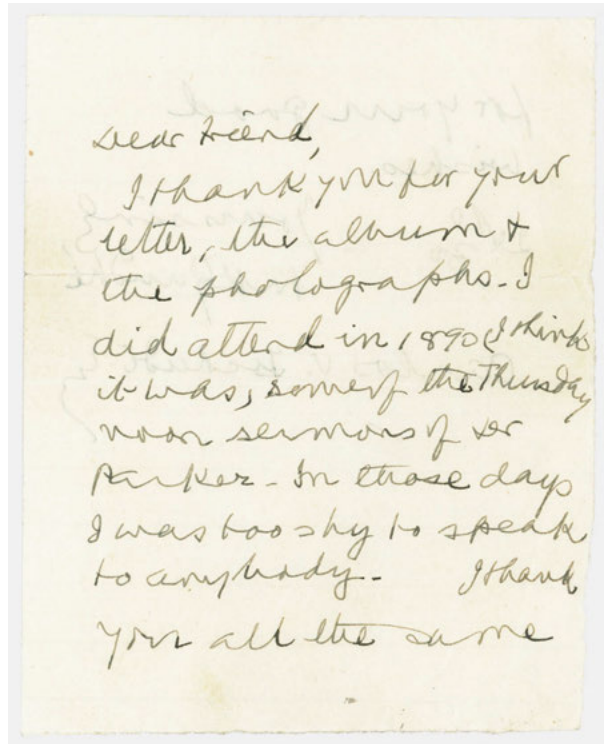 Dear Friend,
I thank you for your
letter, the album &
the photographs. I
did attend in 1890 (I think
it was, some of the Thursday
noon sermons of Dr
Parker - In those days
I was too shy to speak
to anybody. I thank
you all the same
for your good
wishes